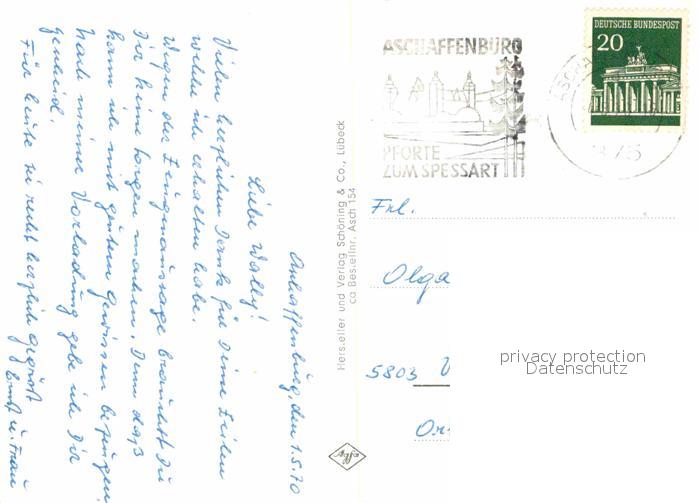 Aschaffenburg, den 1.5.70
Liebe Wally!
Vielen herzlichen Dank für Deine Zeilen
welche ich erhalten habe.
Wegen der Zeugenaussage brauchst Du
Dir keine Sorgen machen. Denn das
kann ich mit gutem Gewissen bezeugen.
Nach meiner Vorladung gebe ich Dir
Für heute sei recht herzlich gegrüßt
Ernst u. Frau
Hersteller und Verlag Schöning & Co., Lübeck
ca Bestellnr. Asch 154
Agfa
ASCHAFFENBURG
PFORTE
ZUM SPESSART
DEUTSCHE BUNDESPOST
20
875
Frl.
Olga
5803
privacy protection
Datenschutz